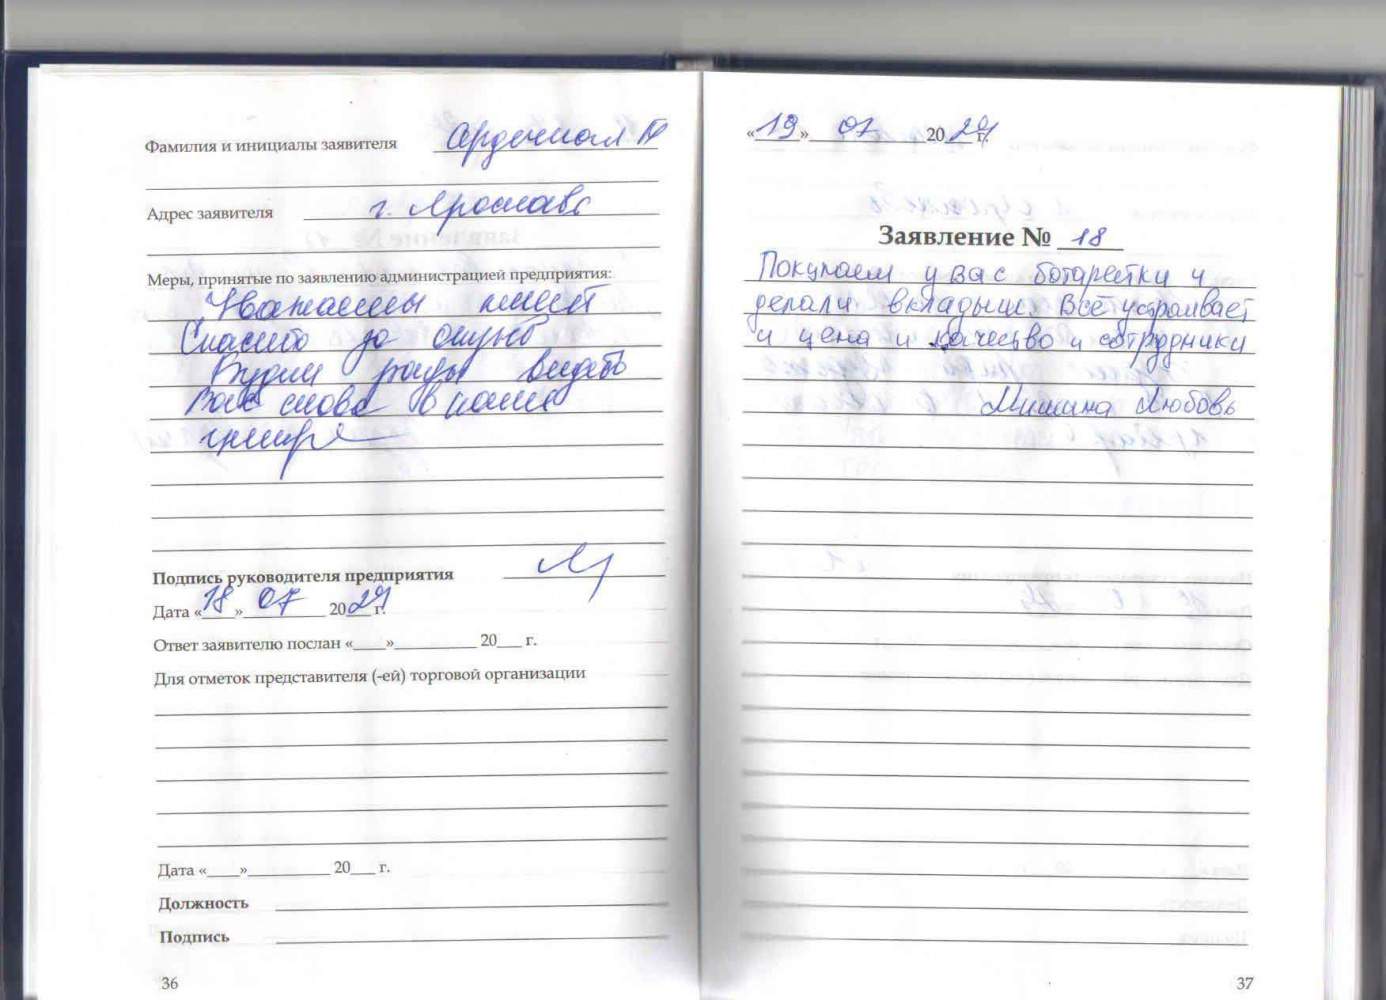 Фамилия и инициалы заявителя
Адрес заявителя г. Ярославль
Меры, принятые по заявлению администрацией предприятия:
Спасибо за отзыв
Будем рады видеть
Вас снова в нашем
центре
Подпись руководителя предприятия
Дата «18» 07 2024 г.
Ответ заявителю послан «____»__________ 20___ г.
Для отметок представителя (-ей) торговой организации
Дата «____»__________ 20___ г.
Должность
Подпись
36
«19» 07 2024 г.
Заявление № 18
Покупаем у вас ботарейки и
делали вкладыши. Всё устраивает
и цена и качество и сотрудники
Мишина Любовь
37